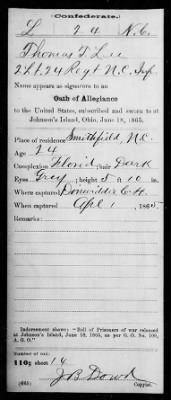 (Confederate.)
L 24 N.C.
Thomas T. Lee
2 Lt. 24 Regt N.C. Inf
Name appears as signature to an
Oath of Allegiance
to the United States, subscribed and sworn to at
Johnson's Island, Ohio, June 18, 1865.
Place of residence Smithfield, N.C.
Age 24
Complexion Florid; hair Dark
Eyes Grey; height 5 ft. 10 in.
Where captured Dinwiddie C.H.
When captured Apl 1, 1865
Remarks:
Indorsement shows: "Roll of Prisoners of war released
at Johnson's Island, June 18, 1865, as per G. O. No. 109,
A. G. O."
Number of roll:
110; sheet 14
J B Dowd
(665) Copyist.